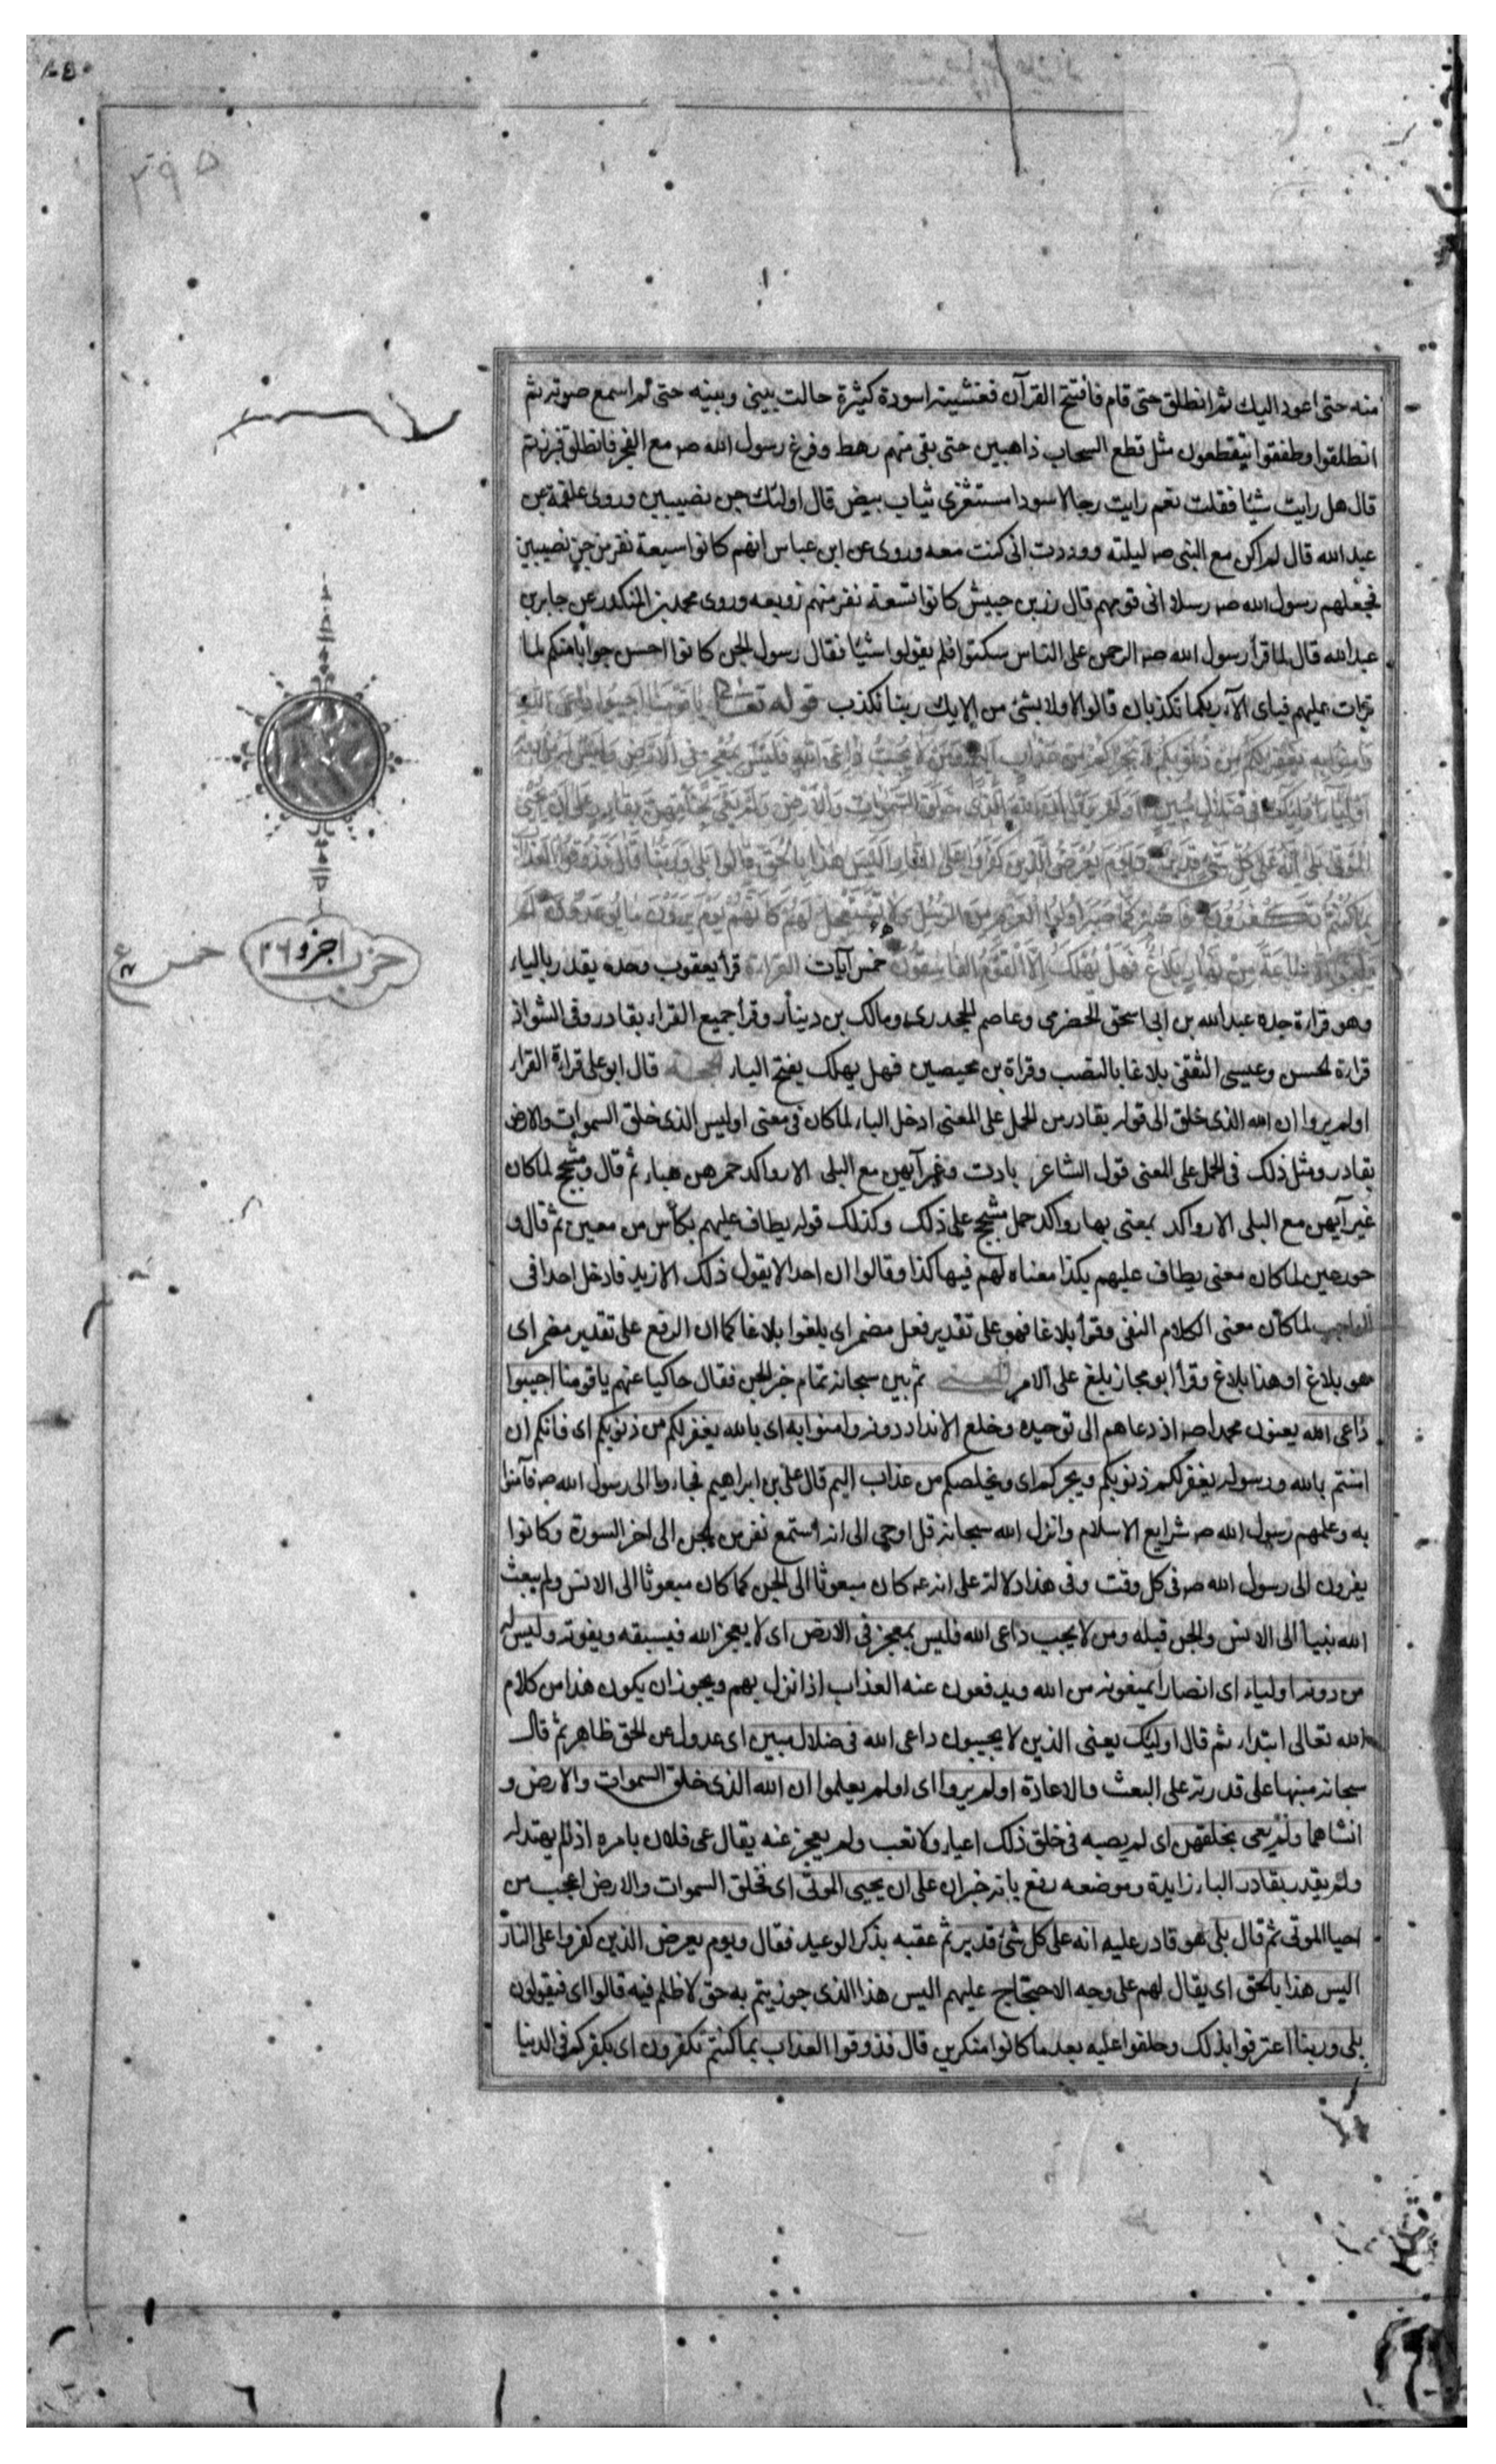 ٢٩٥
منه حتى اعود اليك ثم انطلق حتى قام فافتتح القرآن فغشيته اسودة كثيرة حالت بينى وبينه حتى لم اسمع صوته ثم
انطلقوا وطفقوا يتقطعون مثل قطع السحاب ذاهبين حتى بقى منهم رهط وفرغ رسول الله صـ مع الفجر فانطلق فبرز ثم
قال هل رايت شيئا فقلت نعم رايت رجالا سودا مستثفرى ثياب بيض قال اولئك جن نصيبين وروى علقمة عن
عبد الله قال لم اكن مع النبى صـ ليلته ووددت انى كنت معه وروى عن ابن عباس انهم كانوا سبعة نفر من جن نصيبين
فجعلهم رسول الله صـ رسلا الى قومهم قال زر بن حبيش كانوا تسعة نفر منهم زوبعه وروى محمد بن المنكدر عن جابر بن
عبد الله قال لما قرأ رسول الله صـ الرحمن على الناس سكتوا فلم يقولوا شيئا فقال رسول الجن كانوا احسن جوابا منكم لما
قرات عليهم فباى الآء ربكما تكذبان قالوا لا ولا بشئ من الايك ربنا نكذب قوله تعالى يا قومنا اجيبوا داعى الله
وامنوا به يغفر لكم من ذنوبكم ويجركم من عذاب اليم ومن لا يجب داعى الله فليس بمعجز فى الارض وليس له من دونه
اولياء اوليك فى ضلال مبين اولم يروا ان الله الذى خلق السموات والارض ولم يعى بخلقهن بقادر على ان يحيى
الموتى بلى انه على كل شئ قدير ويوم يعرض الذين كفروا على النار اليس هذا بالحق قالوا بلى وربنا قال فذوقوا العذاب
بما كنتم تكفرون فاصبر كما صبر اولوا العزم من الرسل ولا تستعجل لهم كانهم يوم يرون ما يوعدون لم
يلبثوا الا ساعة من نهار بلاغ فهل يهلك الا القوم الفاسقون خمس آيات القراءة قرأ يعقوب وحده يقدر بالياء
حزب اجزو ٢٦
خمس
وهو قراءة جده عبد الله بن ابى اسحق الحضرمى وعاصم الجحدرى ومالك بن دينار وقرأ جميع القراء بقادر وفى الشواذ
قراءة الحسن وعيسى الثقفى بلاغا بالنصب وقراة بن محيصين فهل يهلك بفتح الياء الحجة قال ابو على قراءة القراء
اولم يروا ان الله الذى خلق الى قوله بقادر من الحمل على المعنى ادخل الباء لما كان فى معنى اوليس الذى خلق السموات والارض
بقادر ومثل ذلك فى الحمل على المعنى قول الشاعر بادت وغير آيهن مع البلى الا رواكد جمرهن هباء ثم قال ومشجج لما كان
غير آيهن مع البلى الا رواكد بمعنى بها رواكد حمل مشجج على ذلك وكذلك قوله يطاف عليهم بكأس من معين ثم قال و
حور عين لما كان معنى يطاف عليهم بكذا معناه لهم فيها كذا وقالوا ان احدا لا يقول ذلك الا زيد فادخل احدا فى
الواجب لما كان معنى الكلام النفى وقرأ بلاغا فهو على تقدير فعل مضمر اى بلغوا بلاغا كما ان الرفع على تقدير مضمر اى
هو بلاغ او هذا بلاغ وقرأ ابو مجاز بلغ على الامر المعنى ثم بين سبحانه تمام خبر الجن فقال حاكيا عنهم يا قومنا اجيبوا
داعى الله يعنون محمدا صـ اذ دعاهم الى توحيده وخلع الانداد دونه وامنوا به اى بالله يغفر لكم من ذنوبكم اى فانكم ان
امنتم بالله ورسوله يغفر لكم ذنوبكم ويجركم اى ويخلصكم من عذاب اليم قال على بن ابراهيم فجاءوا الى رسول الله صـ فآمنوا
به وعلمهم رسول الله صـ شرايع الاسلام وانزل الله سبحانه قل اوحى الى انه استمع نفر من الجن الى اخر السورة وكانوا
يفرون الى رسول الله صـ فى كل وقت وفى هذا دلالة على انه عـ كان مبعوثا الى الجن كما كان مبعوثا الى الانس ولم يبعث
الله نبيا الى الانس والجن قبله ومن لا يجيب داعى الله فليس بمعجز فى الارض اى لا يعجز الله فيسبقه ويفوته وليس له
من دونه اولياء اى انصار يمنعونه من الله ويدفعون عنه العذاب اذا نزل بهم ويجوز ان يكون هذا من كلام
الله تعالى ابتداء ثم قال اوليك يعنى الذين لا يجيبون داعى الله فى ضلال مبين اى عدول عن الحق ظاهر ثم قال
سبحانه منبها على قدرته على البعث والاعادة اولم يروا اى اولم يعلموا ان الله الذى خلق السموات والارض و
انشاهما ولم يعى بخلقهن اى لم يصبه فى خلق ذلك اعياء ولا تعب ولم يعجز عنه يقال عى فلان بامره اذ لم يهتد له
ولم يقدر بقادر الباء زايدة وموضعه رفع بانه خبر ان على ان يحيى الموتى اى فخلق السموات والارض اعجب من
احيا الموتى ثم قال بلى هو قادر عليه انه على كل شئ قدير ثم عقبه بذكر الوعيد فقال ويوم يعرض الذين كفروا على النار
اليس هذا بالحق اى يقال لهم على وجه الاحتجاج عليهم اليس هذا الذى جوزيتم به حق لا ظلم فيه قالوا اى فيقولون
بلى وربنا اعترفوا بذلك وحلفوا عليه بعد ما كانوا منكرين قال فذوقوا العذاب بما كنتم تكفرون اى بكفركم فى الدنيا